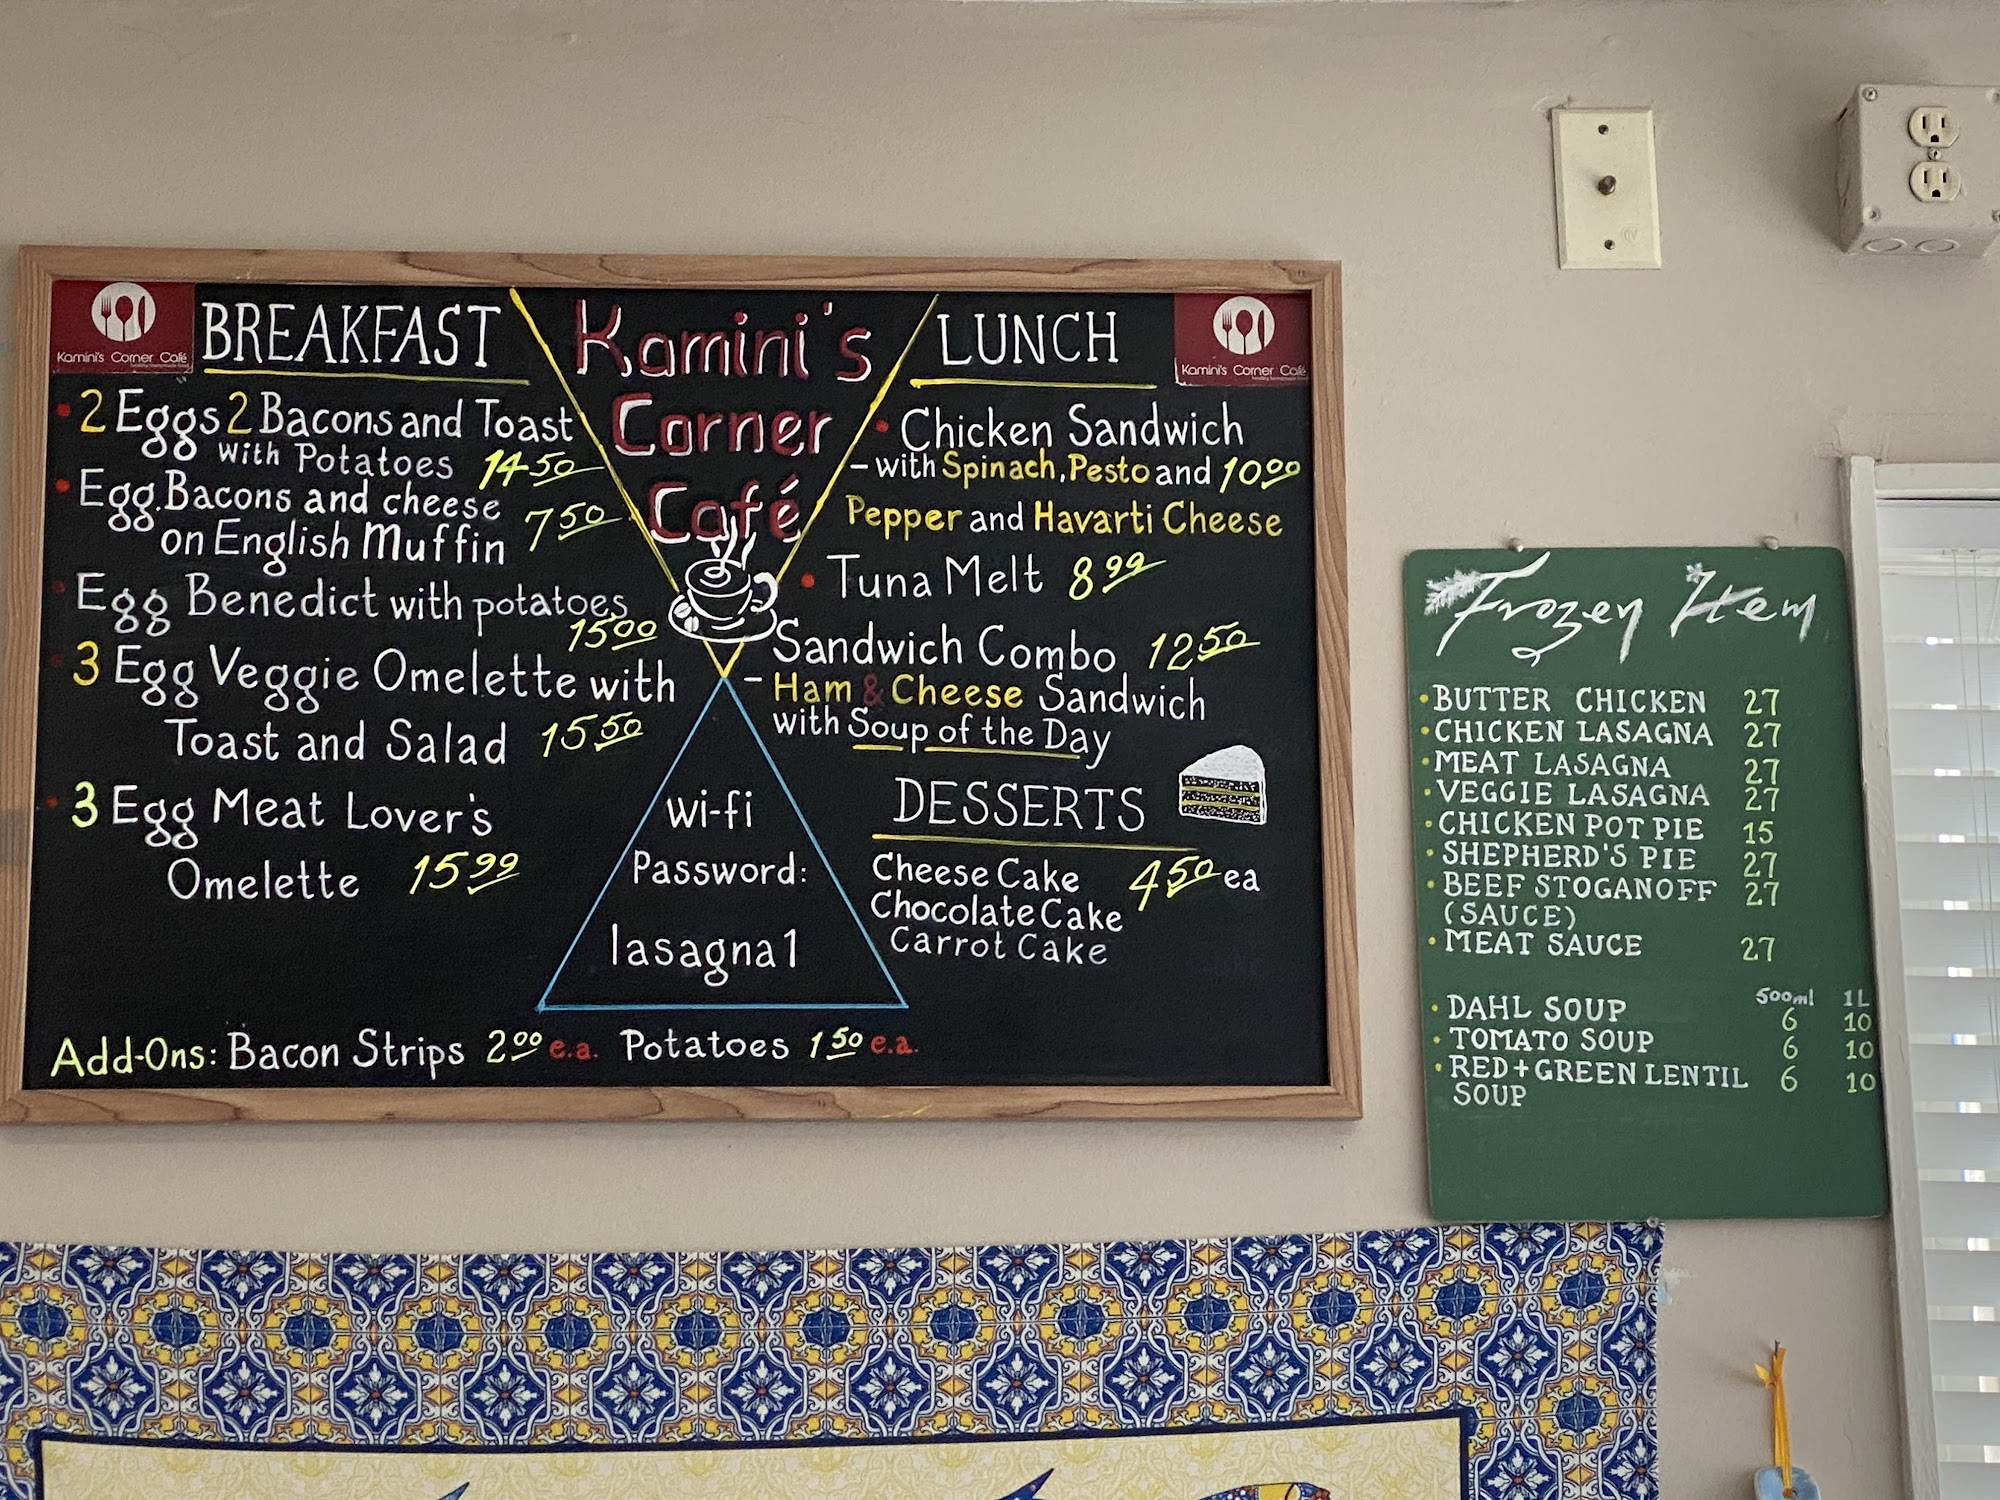 Kamini's Corner Café
BREAKFAST
2 Eggs 2 Bacons and Toast
with Potatoes 14.50
Egg, Bacons and cheese
on English Muffin 7.50
Egg Benedict with potatoes
15.00
3 Egg Veggie Omelette with
Toast and Salad 15.50
3 Egg Meat Lover's
Omelette 15.99
Kamini's
Corner
Café
wi-fi
Password:
lasagna1
LUNCH
Kamini's Corner Café
Chicken Sandwich
- with Spinach, Pesto and 10.00
Pepper and Havarti Cheese
Tuna Melt 8.99
Sandwich Combo 12.50
- Ham & Cheese Sandwich
with Soup of the Day
DESSERTS
Cheese Cake 4.50 ea
Chocolate Cake
Carrot Cake
Add-Ons: Bacon Strips 2.00 e.a. Potatoes 1.50 e.a.
Frozen Item
BUTTER CHICKEN 27
CHICKEN LASAGNA 27
MEAT LASAGNA 27
VEGGIE LASAGNA 27
CHICKEN POT PIE 15
SHEPHERD'S PIE 27
BEEF STOGANOFF 27
(SAUCE)
MEAT SAUCE 27
500ml 1L
DAHL SOUP 6 10
TOMATO SOUP 6 10
RED+GREEN LENTIL 6 10
SOUP